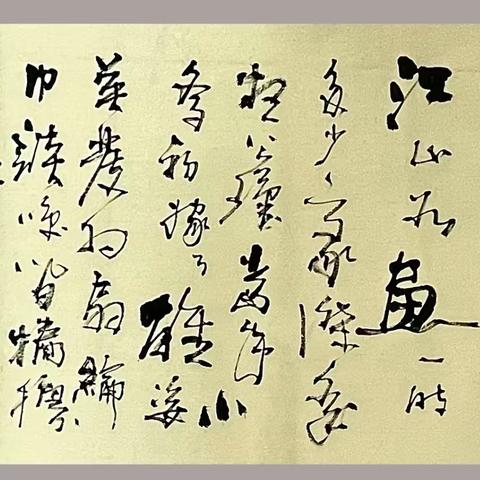 江山如畫一時
多少豪傑遙
想公瑾當年小
喬初嫁了雄姿
英發羽扇綸
巾談咲間檣櫓